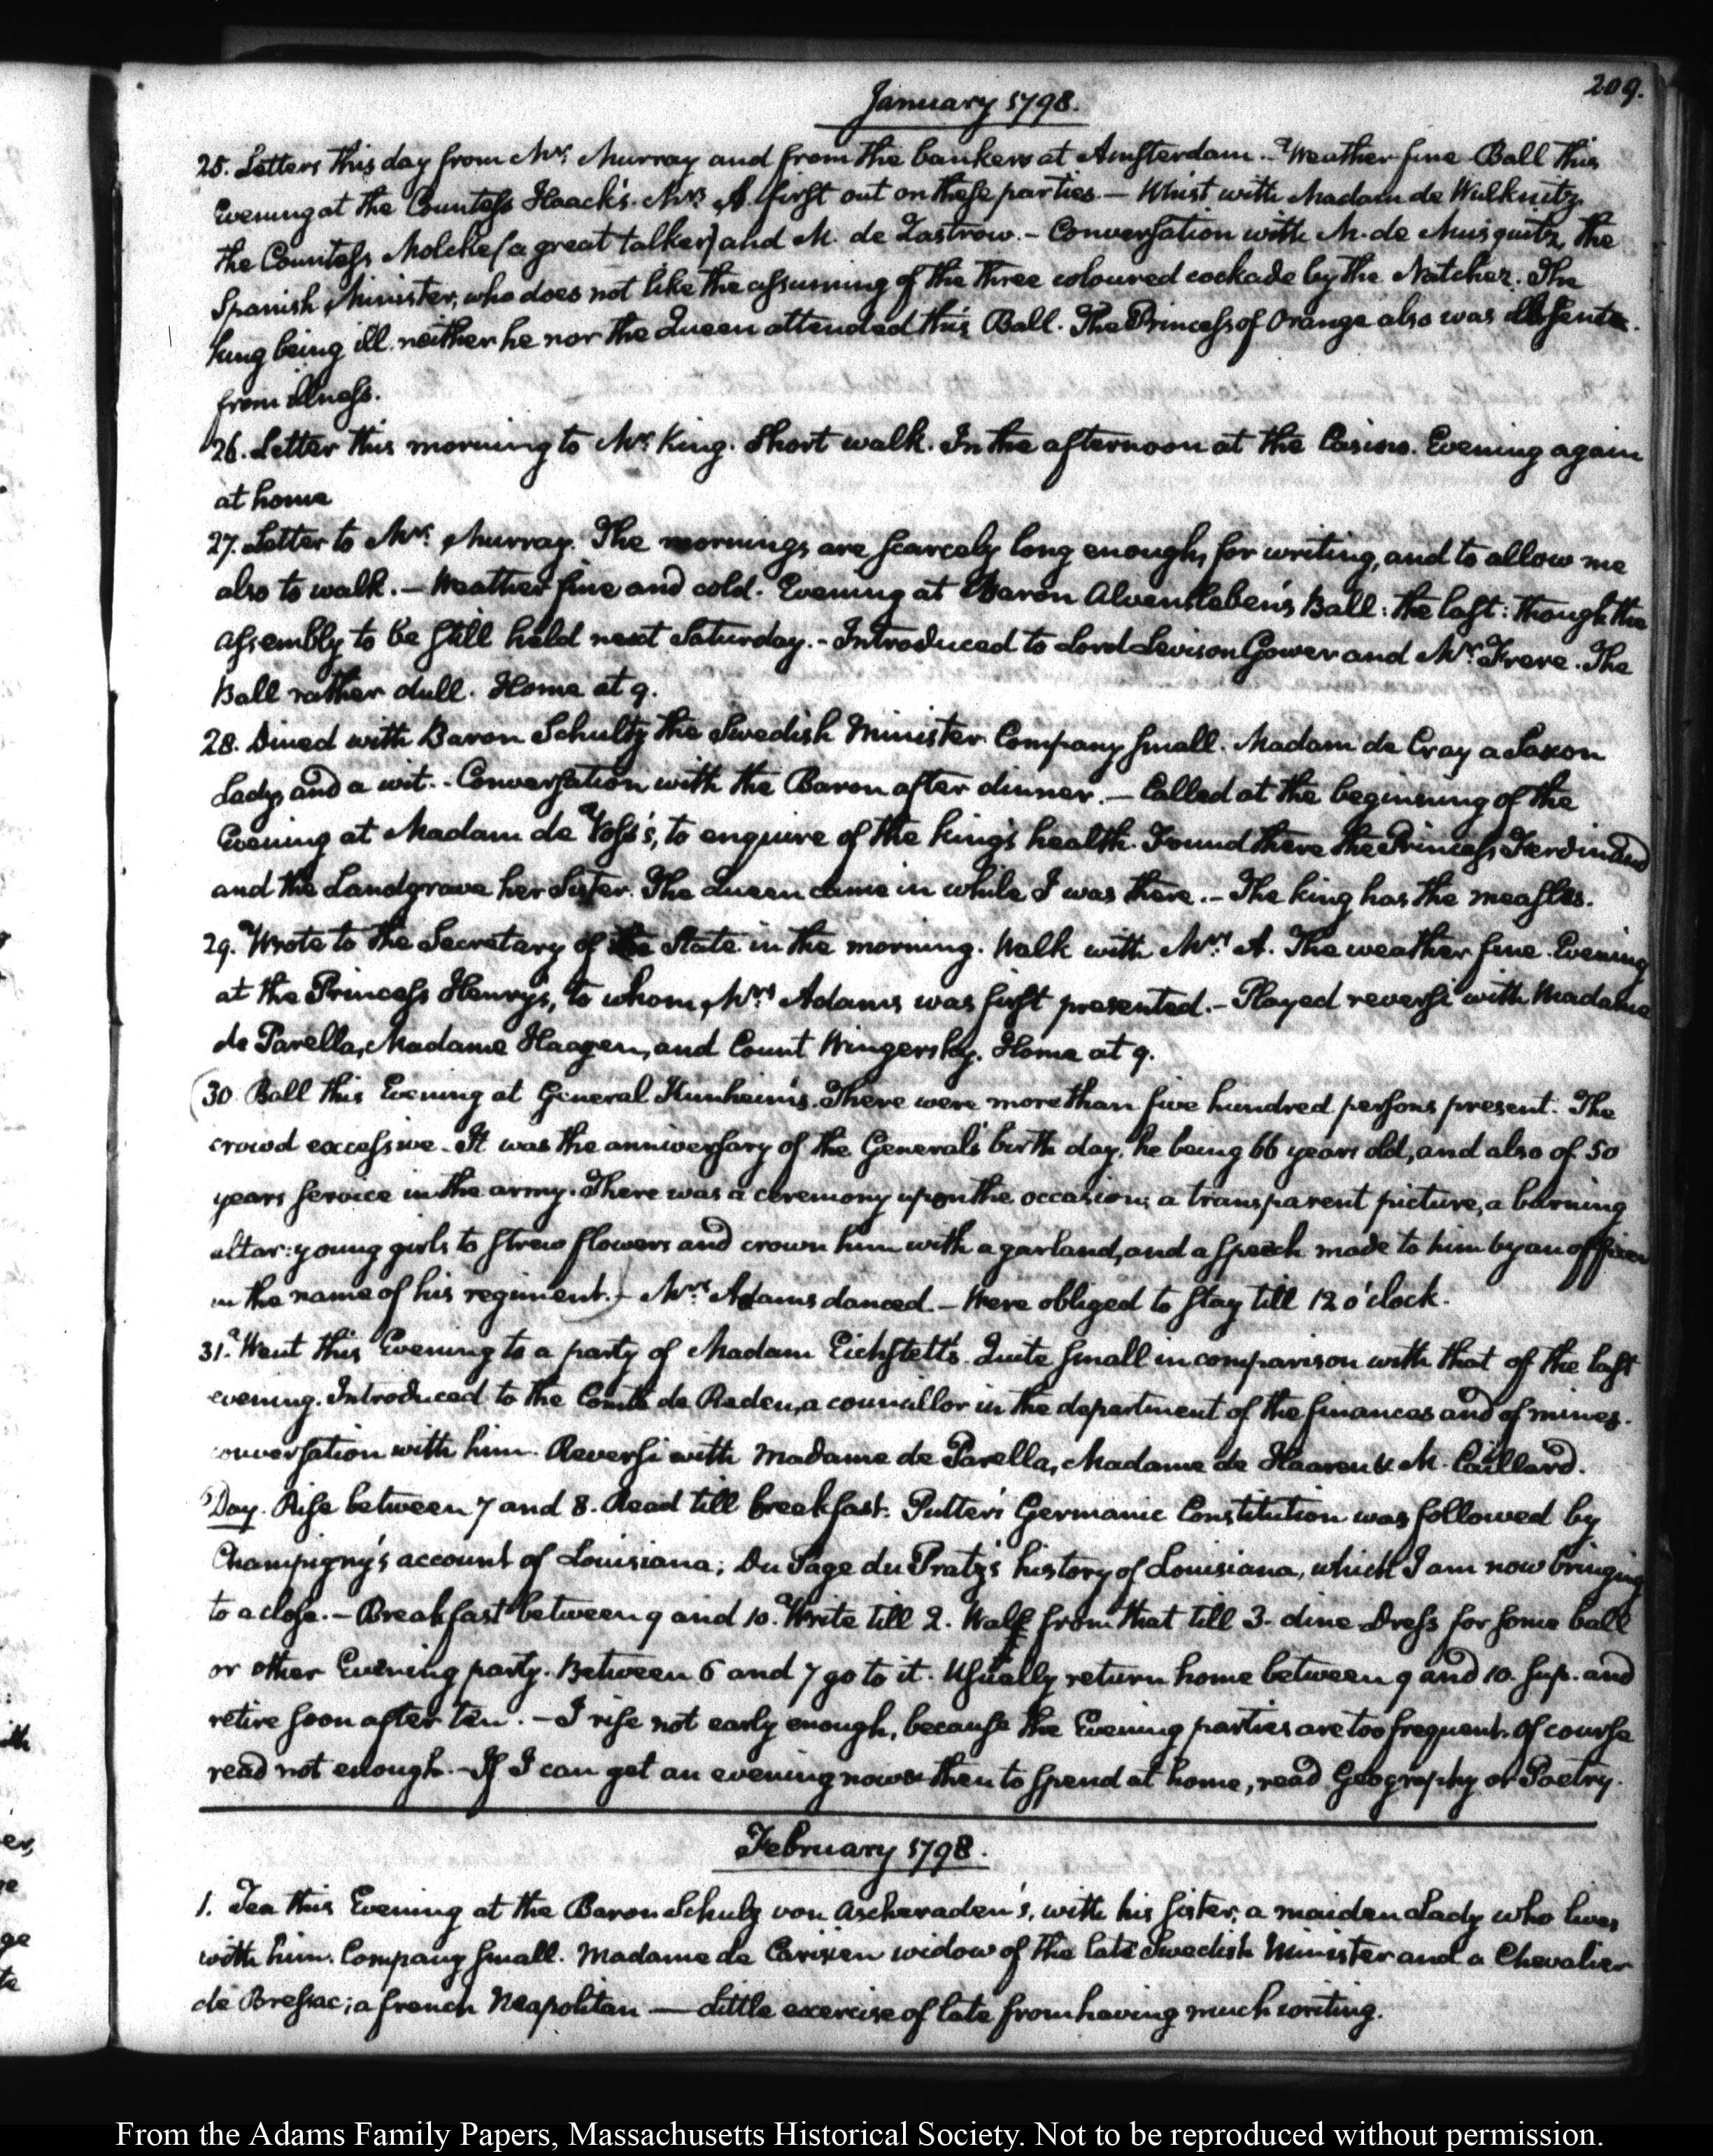 209.
January 1798.
25. Letters this day from Mr. Murray and from the bankers at Amsterdam. Weather fine Ball this
Evening at the Countess Haack's. Mrs. A. first out on these parties. — Whist with Madam de Wulknitz,
the Countess Molcke (a great talker) and M. de Zastrow. - Conversation with M. de Musquitz, the
Spanish Minister, who does not like the assuming of the three coloured cockade by the Natchez. The
King being ill. neither he nor the Queen attended this Ball. The Princess of Orange also was absent
from illness.
26. Letter this morning to Mr. King. Short walk. In the afternoon at the Casino. Evening again
at home
27. Letter to Mr. Murray. The mornings are scarcely long enough, for writing, and to allow me
also to walk. — Weather fine and cold. Evening at Baron Alvensleben's Ball: the last: though the
assembly to be still held next Saturday. - Introduced to Lord Levison Gower and Mr. Frere. The
Ball rather dull. Home at 9.
28. Dined with Baron Schultz the Swedish Minister. Company small. Madam de Cray a Saxon
Lady, and a wit. - Conversation with the Baron after dinner. — Called at the beginning of the
Evening at Madam de Voss's, to enquire of the king's health. Found there the Princess Ferdinand
and the Landgrave her Sister. The Queen came in while I was there. - The king has the measles.
29. Wrote to the Secretary of the State in the morning. Walk with Mrs. A. The weather fine. Evening
at the Princess Henry's, to whom Mrs. Adams was first presented. - Played reversi with Madame
de Parella, Madame Haagen, and Count Wingersky. Home at 9.
(30 Ball this Evening at General Kunheim's. There were more than five hundred persons present. The
crowd excessive. It was the anniversary of the General's birth day, he being 66 years old, and also of 50
years service in the army. There was a ceremony upon the occasion; a transparent picture, a burning
altar: young girls to strew flowers and crown him with a garland, and a speech made to him by an officer
in the name of his regiment.) - Mrs. Adams danced. - Were obliged to stay till 12 o'clock.
31. Went this Evening to a party of Madam Eichstett's. Quite small in comparison with that of the last
evening. Introduced to the Comte de Reden, a councillor in the department of the finances and of mines.
conversation with him. Reversi with Madame de Parella, Madame de Haaren & M. Caillard.
Day. Rise between 7 and 8. Read till breakfast. Putter's Germanic Constitution was followed by
Champigny's account of Louisiana; Du Page du Pratz's history of Louisiana, which I am now bringing
to a close. — Breakfast between 9 and 10. Write till 2. Walk from that till 3. dine. Dress for some ball
or other Evening party. Between 6 and 7 go to it. Usually return home between 9 and 10. Sup. and
retire soon after ten. — I rise not early enough, because the Evening parties are too frequent. Of course
read not enough. - If I can get an evening now & then to spend at home, read Geography or Poetry.
February 1798.
1. Tea this Evening at the Baron Schulz von Ascheraden's, with his sister, a maiden Lady who lives
with him. Company small. Madame de Carisien widow of the late Swedish Minister and a Chevalier
de Bressac; a french Neapolitan — Little exercise of late from having much writing.
From the Adams Family Papers, Massachusetts Historical Society. Not to be reproduced without permission.